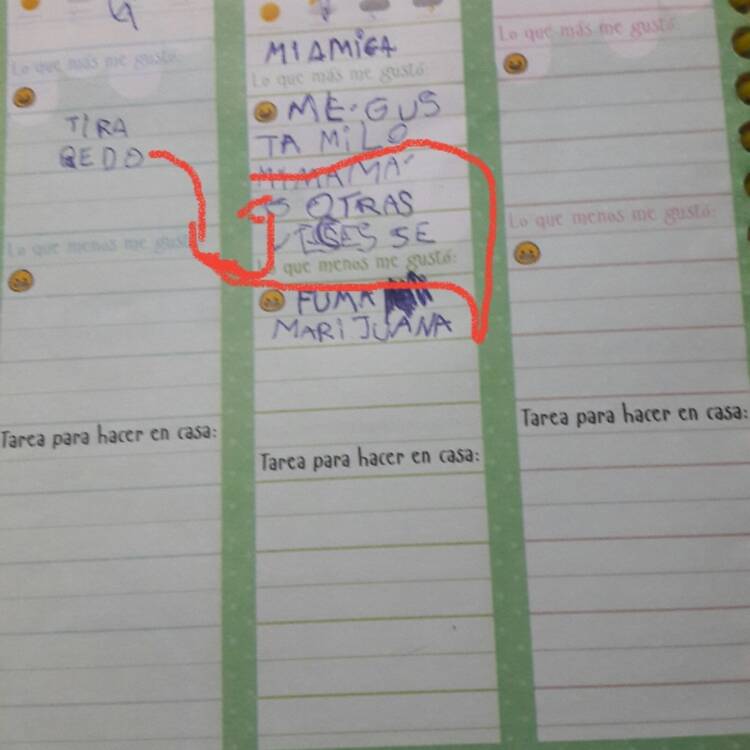 Lo que más me gustó:
TIRA
QEDO
Lo que menos me gustó:
Tarea para hacer en casa:
MI AMIGA
Lo que más me gustó:
ME GUS
TA MILO
MI MAMÁ
OTRAS
VESES SE
Lo que menos me gustó:
FUMA
MARIJUANA
Tarea para hacer en casa:
Lo que más me gustó:
Lo que menos me gustó:
Tarea para hacer en casa: